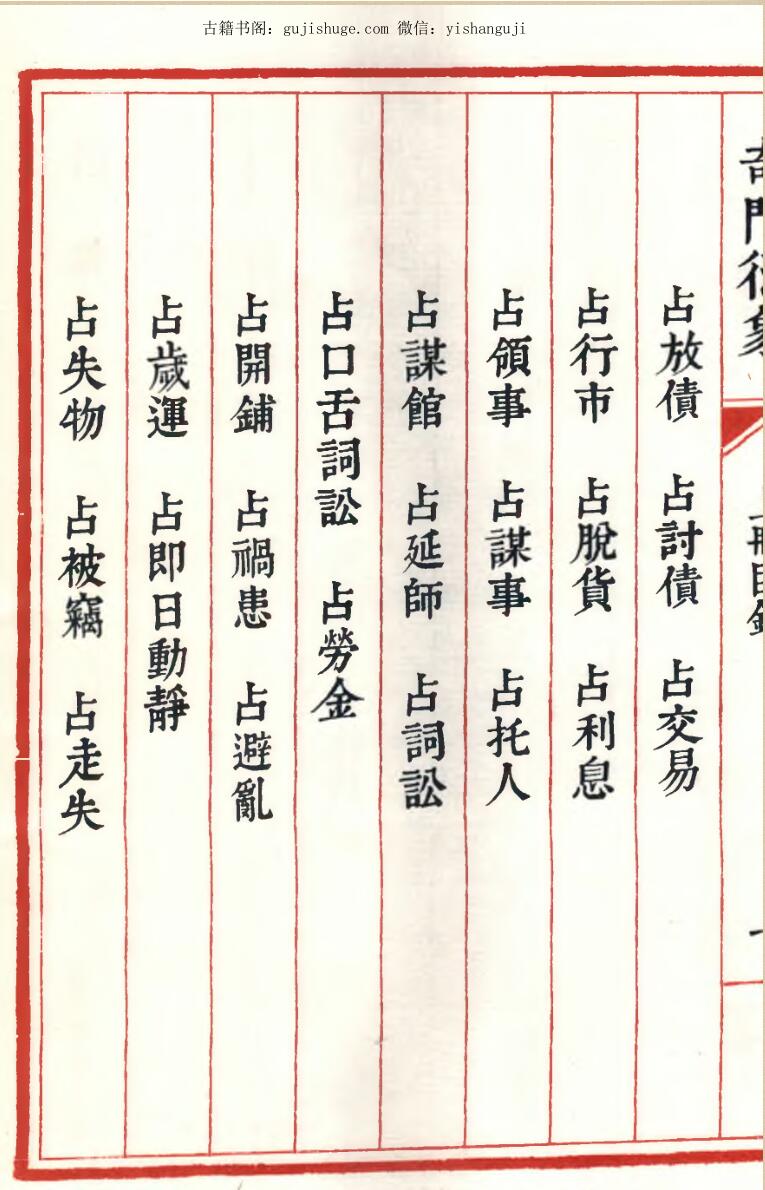 古籍书阁：gujishuge.com 微信：yishanguji
奇門衍象
一冊目錄
一
占放債 占討債 占交易
占行市 占脫貨 占利息
占領事 占謀事 占托人
占謀館 占延師 占詞訟
占口舌詞訟 占勞金
占開鋪 占禍患 占避亂
占歲運 占即日動靜
占失物 占被竊 占走失